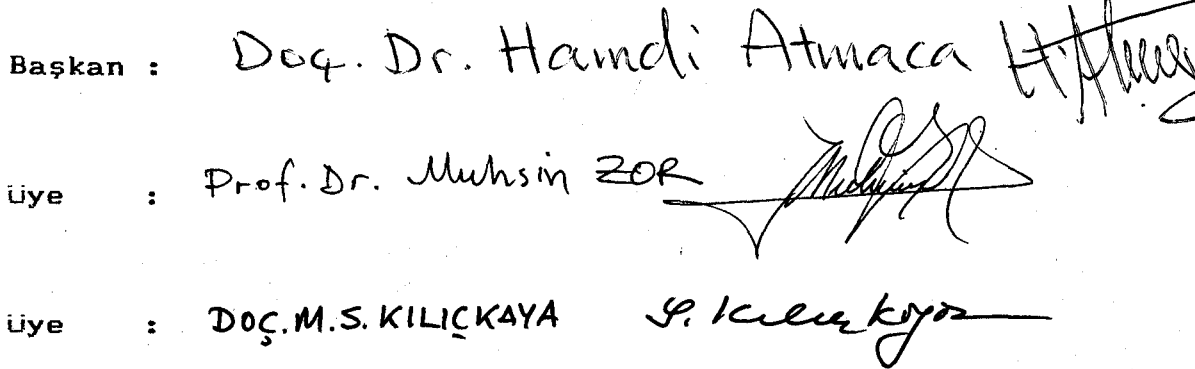 Başkan : Doç. Dr. Hamdi Atmaca H.Atmaca
üye : Prof. Dr. Muhsin ZOR
üye : DOÇ. M.S. KILIÇKAYA S. Kılıçkaya